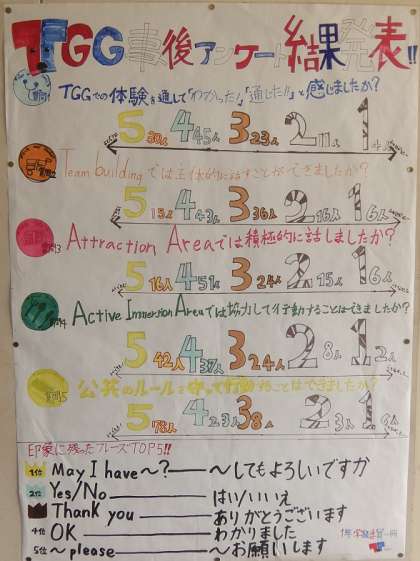 TGG事後アンケート結果発表!!
TGGでの体験を通して「わかった!」「通じた!!」と感じましたか?
5 30人 4 45人 3 23人 2 11人 1
Team buildingでは主体的に話すことができましたか?
5 15人 4 43人 3 36人 2 16人 1 6人
Attraction Areaでは積極的に話しましたか?
5 16人 4 51人 3 24人 2 15人 1 6人
Active Immersion Areaでは協力して行動することはできましたか?
5 42人 4 37人 3 24人 2 8人 1 2人
公共のルールを守って行動することはできましたか?
5 78人 4 23人 3 8人 2 3人 1
印象に残ったフレーズTOP5!!
1位 May I have～? ～してもよろしいですか
2位 Yes/No はい/いいえ
Thank you ありがとうございます
4位 OK わかりました
5位 ～please ～お願いします